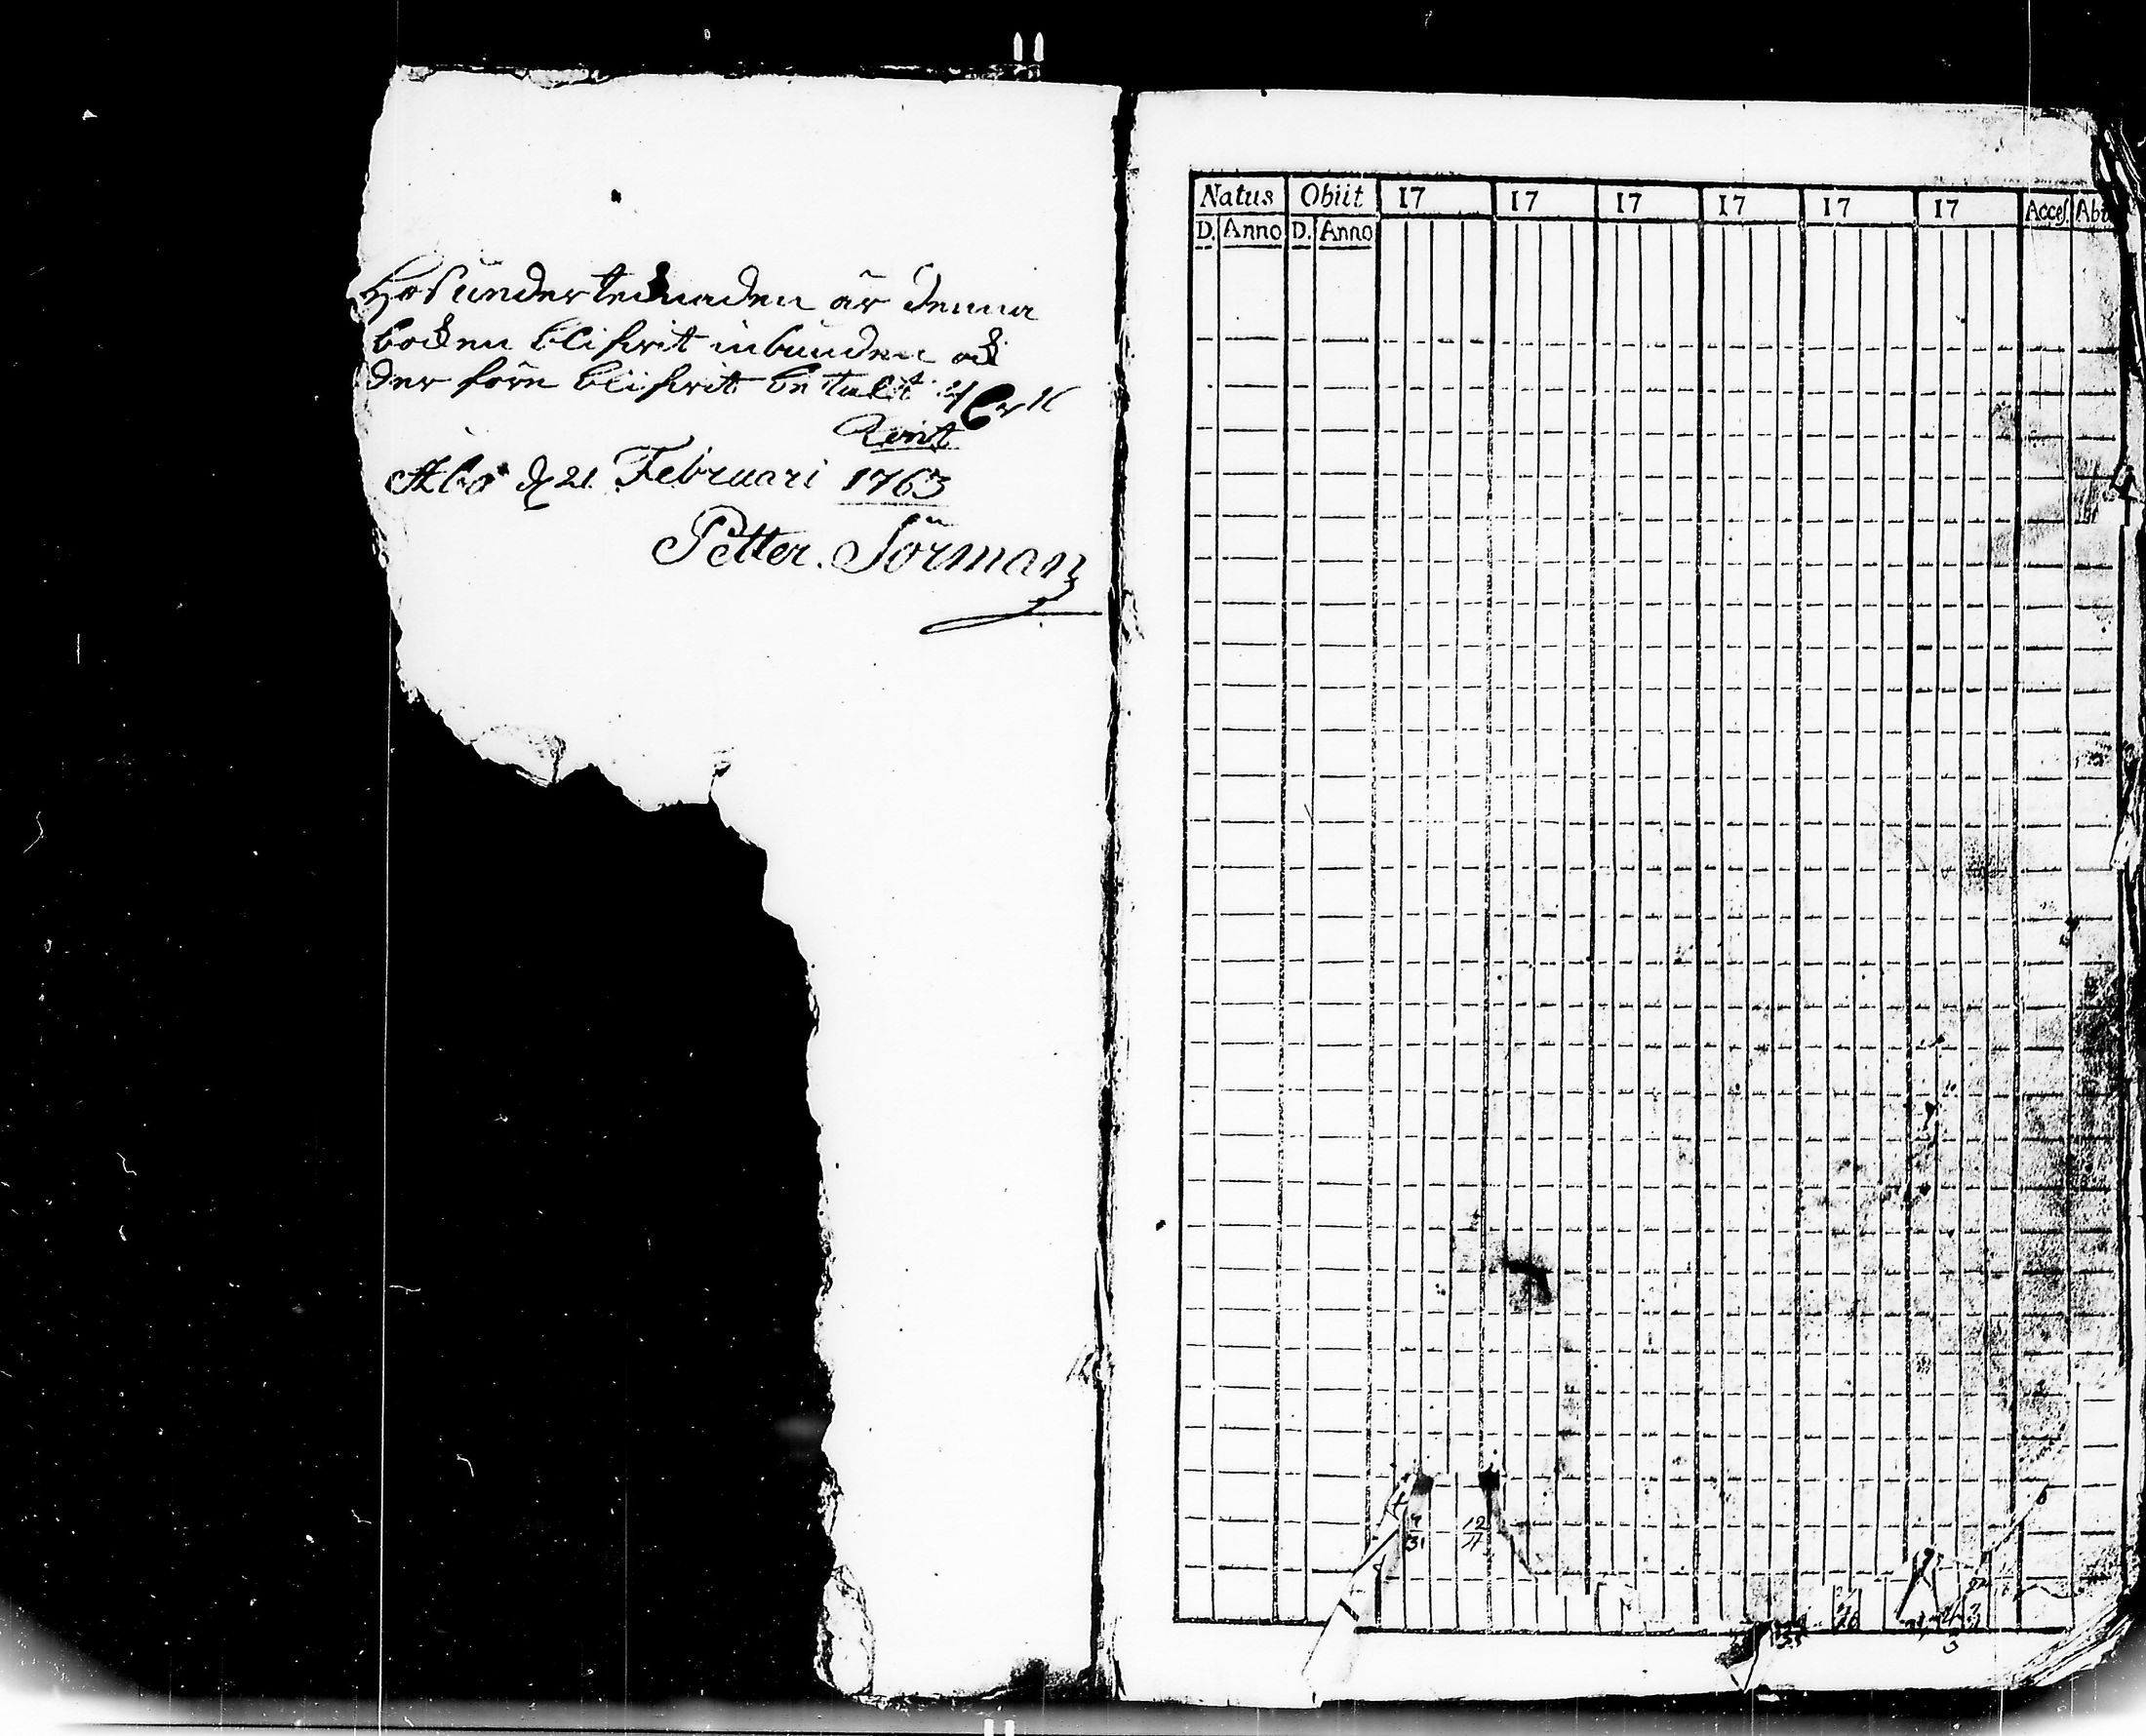 Hos undertecknaden är denna
boken blifwit inbunden och
der före blifwit betalt
Åbo d 21 Februari 1763
Petter Sörman
Natus Obiit 17 17 17 17 17 17 Acces. Abi
D. Anno D. Anno